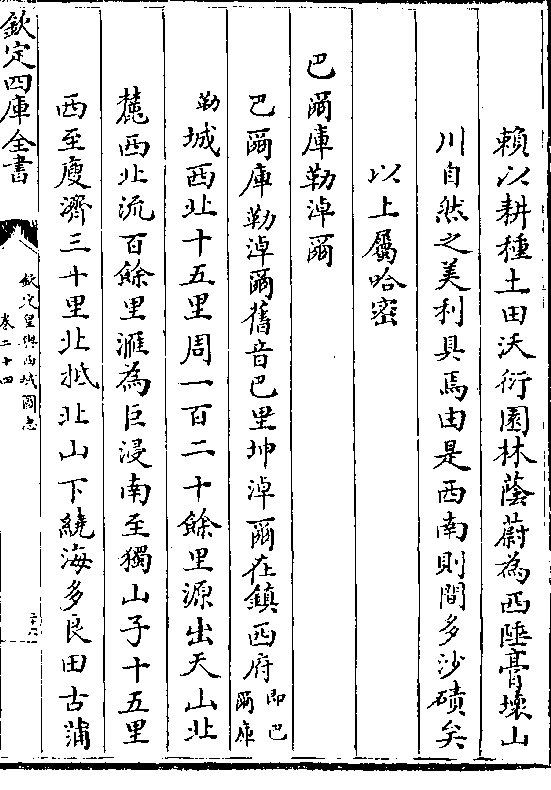 賴以耕種土田沃衍園林蔭蔚為西陲膏壤山
川自然之美利具焉由是西南則間多沙磧矣
以上屬哈密
巴爾庫勒淖爾
巴爾庫勒淖爾舊音巴里坤淖爾在鎮西府即巴爾庫
勒城西北十五里周一百二十餘里源出天山北
麓西北流百餘里滙為巨浸南至獨山子十五里
西至廋濟三十里北抵北山下繞海多良田古蒲
欽定四庫全書
欽定皇輿西域圖志
卷二十四
二十六